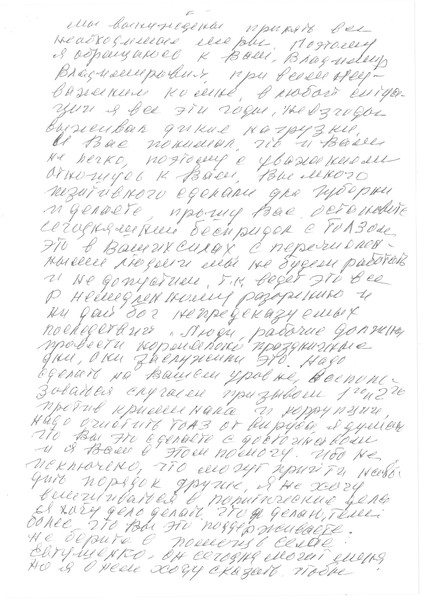 мы вынуждены принять все
необходимые меры. Поэтому
я обращаюсь к Вам, Владимир
Владимирович, при всем неу-
важении ко мне, в любой ситуа-
ции я все эти годы, невзгоды
выживал дикие нагрузки,
и Вас понимал, что и Вам
не легко, поэтому с уважением
отношусь к Вам, Вы много
позитивного сделали для
и делаете, прошу Вас, остановите
сегодняшний беспридел с ТОАЗом
это в Ваших силах с перечислен-
ными людьми мы не будем работать
и не допустим, т.к. ведет это все
к немедленному разорению и
ни дай бог непредсказуемых
последствий. Люди, рабочие должны
провести нормально праздничные
дни, они заслужили это. Надо
сделать на Вашем уровне,
случаем призывом
против криминала и коррупции,
надо очистить ТОАЗ от вируса, я думаю
что Вы это сделаете с достоинством
и я Вам в этом помогу. Ибо не
исключено, что могут прийти наво-
дить порядок другие, я не хочу
вмешиваться в политические дела
я хочу дело делать, что и делаю, тем
более что Вы это поддерживаете.
не берите в помощь себе
он сегодня может меня
но я о нем хочу сказать, чтобы